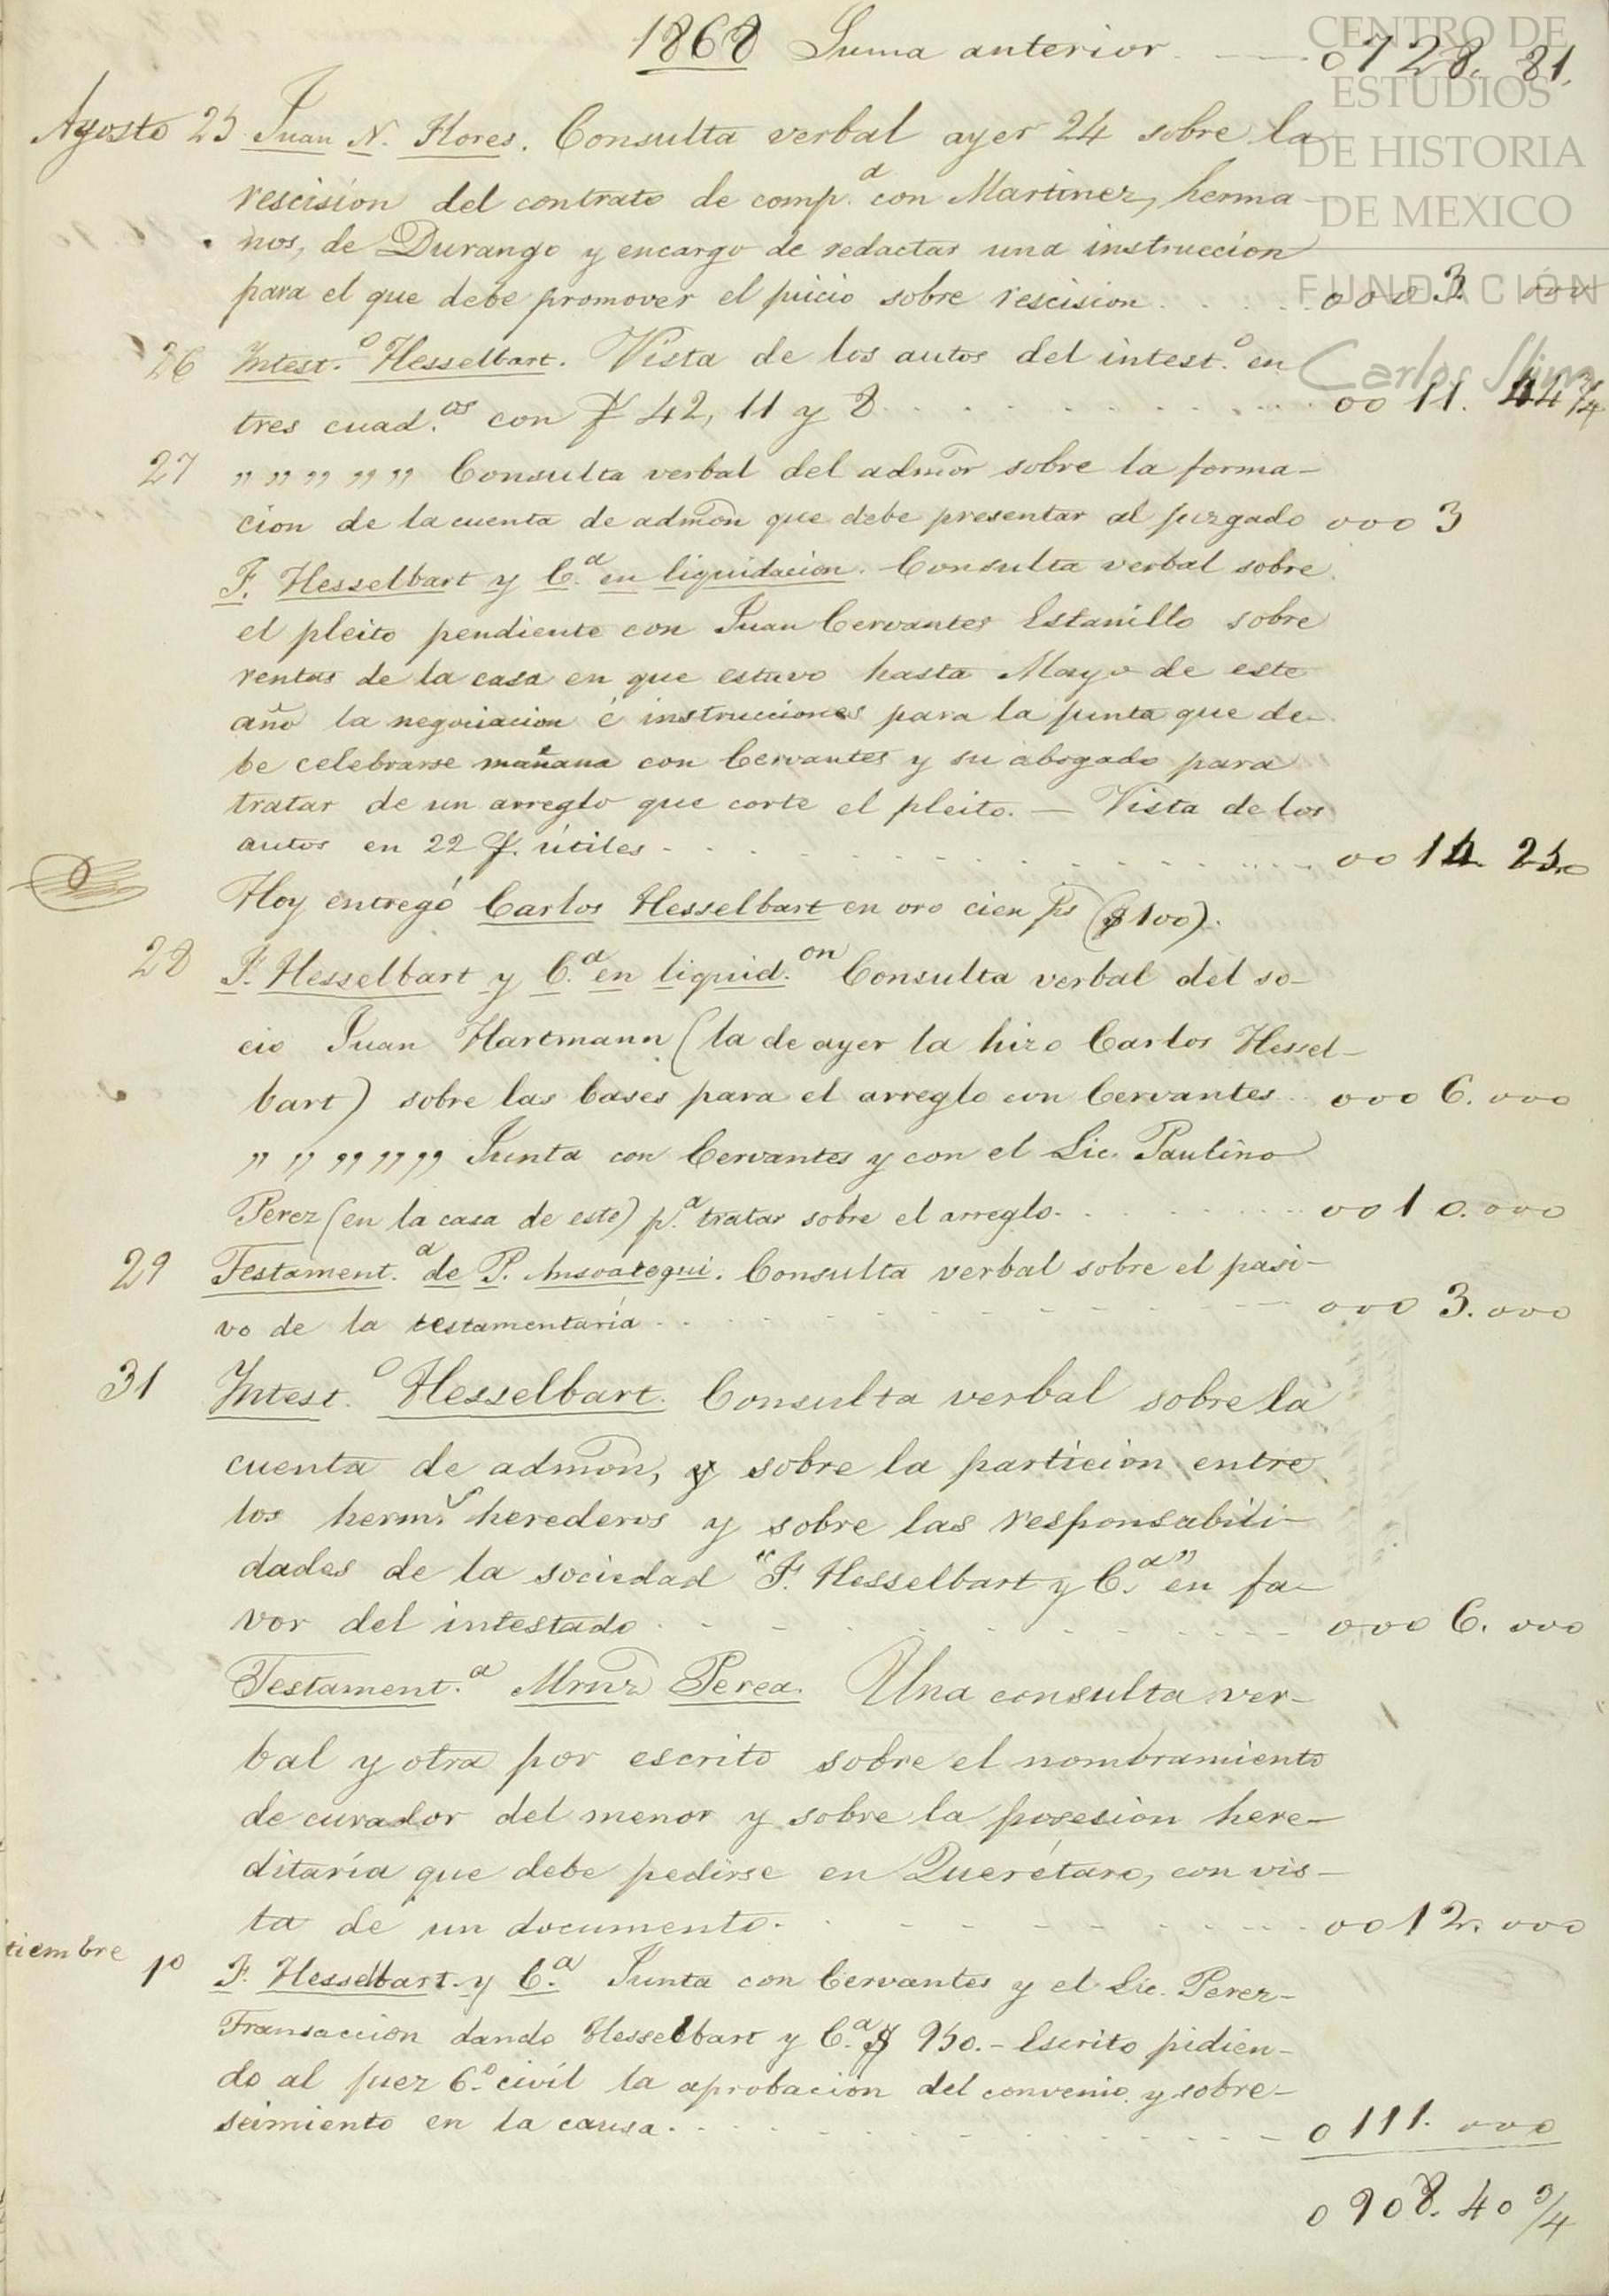 1868 Suma anterior. — 0728. 81.
CENTRO DE
ESTUDIOS
DE HISTORIA
DE MEXICO
FUNDACIÓN
Carlos Slim
Agosto 25 Juan N. Flores. Consulta verbal ayer 24 sobre la
rescision del contrato de comp.a con Martinez, herma-
nos, de Durango y encargo de redactar una instruccion
para el que debe promover el juicio sobre rescision . . . . 000 3. 000
26 Intest.o Hesselbart. Vista de los autos del intest.o en
tres cuad.os con f 42, 11 y 8 . . . . . . . . . . 00 11. 44 3/4
27 " " " " " Consulta verbal del admor sobre la forma-
cion de la cuenta de admon que debe presentar al juzgado 000 3
F. Hesselbart y C.a en liquidacion. Consulta verbal sobre
el pleito pendiente con Juan Cervantes Estanillo sobre
rentas de la casa en que estuvo hasta Mayo de este
año la negociacion é instrucciones para la junta que de-
be celebrarse mañana con Cervantes y su abogado para
tratar de un arreglo que corte el pleito. — Vista de los
autos en 22 f. útiles - - - - - - - - - - 00 14. 25.0
Hoy entregó Carlos Hesselbart en oro cien ps ($100).
28 F. Hesselbart y C.a en liquid.on Consulta verbal del so-
cio Juan Hartmann (la de ayer la hizo Carlos Hessel-
bart) sobre las bases para el arreglo con Cervantes . . 000 6. 000
" " " " " Junta con Cervantes y con el Lic. Paulino
Perez (en la casa de este) p.a tratar sobre el arreglo. . . . . . . . 0010. 000
29 Testament.a de P. Ansoategui. Consulta verbal sobre el pasi-
vo de la testamentaria . . - - - - - - - 000 3. 000
31 Intest.o Hesselbart. Consulta verbal sobre la
cuenta de admon, y sobre la particion entre
los herm.s herederos y sobre las responsabili-
dades de la sociedad "F. Hesselbart y C.a" en fa-
vor del intestado . - - - - - - - - 000 6. 000
Testament.a Mrnz Perea. Una consulta ver-
bal y otra por escrito sobre el nombramiento
de curador del menor y sobre la posesion here-
ditaria que debe pedirse en Querétaro, con vis-
ta de un documento. . - - - - - - - 0012. 000
tiembre 1o F. Hesselbart y C.a Junta con Cervantes y el Lic. Perez-
Transaccion dando Hesselbart y C.a $ 950. - Escrito pidien-
do al juez 6.o civil la aprobacion del convenio y sobre-
seimiento en la causa . . - - - - - - - 0111. 000
0908. 40 3/4